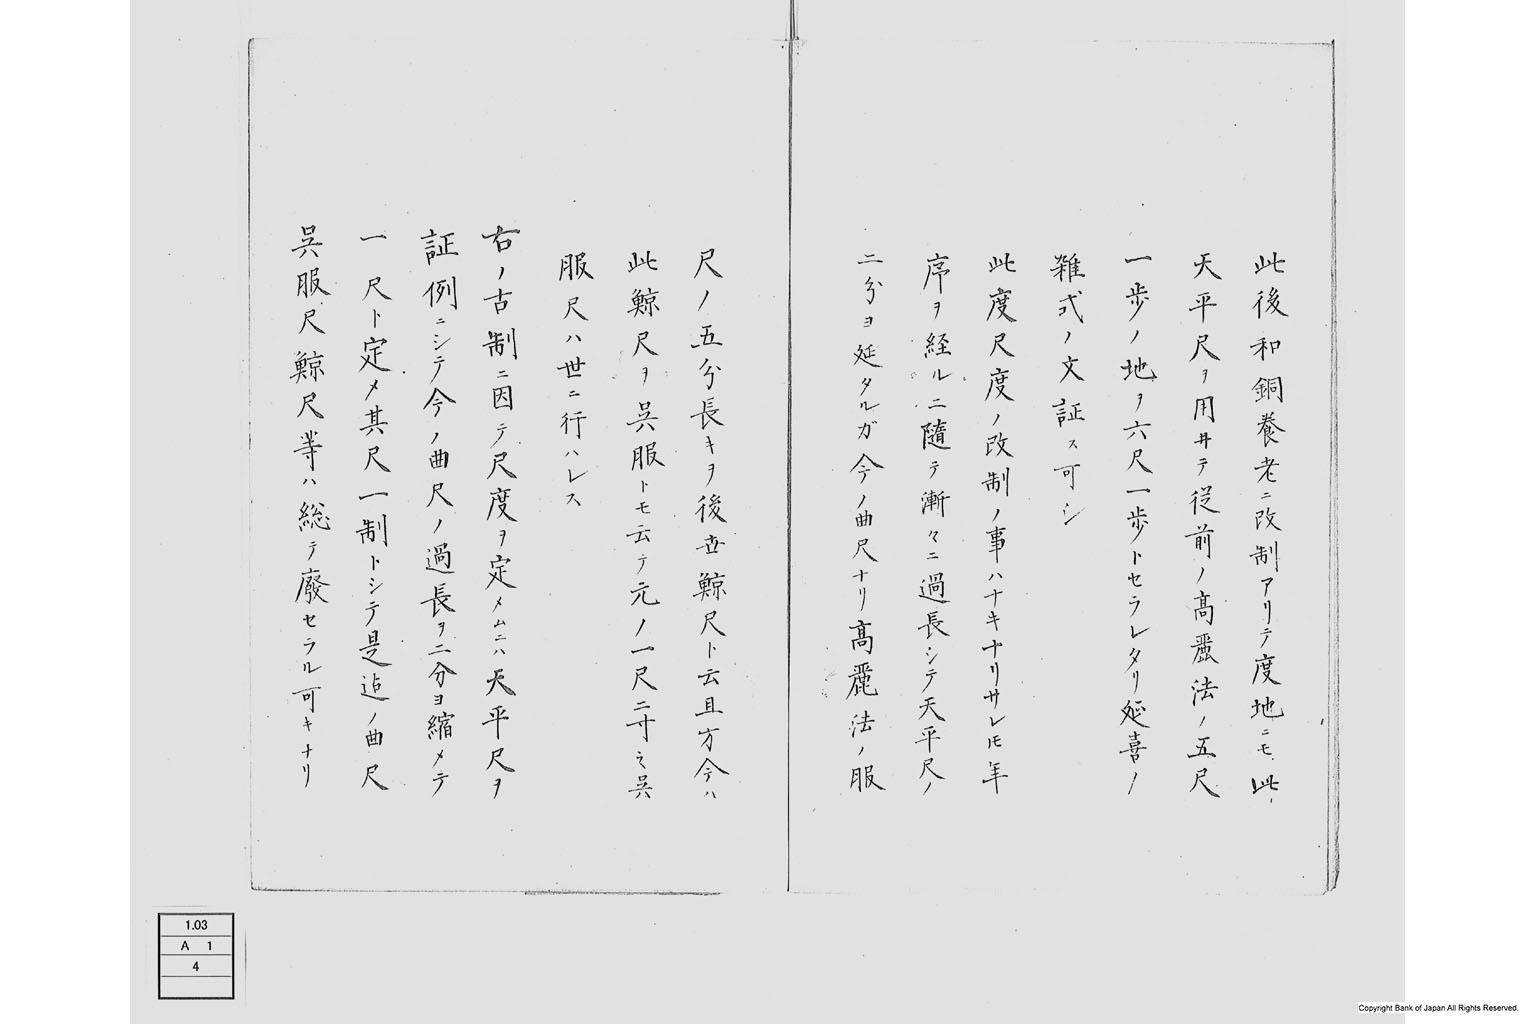 此後和銅養老ニ改制アリテ度地ニモ此
天平尺ヲ用井テ従前ノ髙麗法ノ五尺
一歩ノ地ヲ六尺一歩トセラレタリ延喜ノ
雑式ノ文証ス可シ
此度尺度ノ改制ノ事ハナキナリサレ𪜈年
序ヲ経ルニ隨テ漸々ニ過長シテ天平尺ノ
二分ヨ延タルガ今ノ曲尺ナリ髙麗法ノ服
尺ノ五分長キヲ後世鯨尺ト云且方今ハ
此鯨尺ヲ呉服トモ云テ元ノ一尺二寸之呉
服尺ハ世ニ行ハレス
右ノ古制ニ因テ尺度ヲ定メムニハ天平尺ヲ
証例ニシテ今ノ曲尺ノ過長ヲ二分ヨ縮メテ
一尺ト定メ其尺一制トシテ是迠ノ曲尺
呉服尺鯨尺等ハ総テ廢セラル可キナリ
1.03
A 1
4
Copyright Bank of Japan All Rights Reserved.